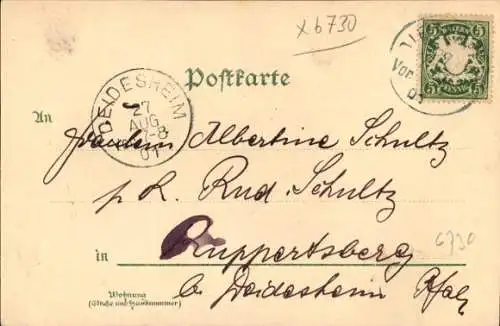 x 6730
BAYERN
5 5
PFENNIG
Vor
01
Postkarte
DEIDESHEIM
27
AUG
7-8
01
An
Fräulein Albertine Schultz
p. A. Rud. Schultz
in Ruppertsberg
6730
b. Deidesheim Pfalz
Wohnung
(Straße und Hausnummer)